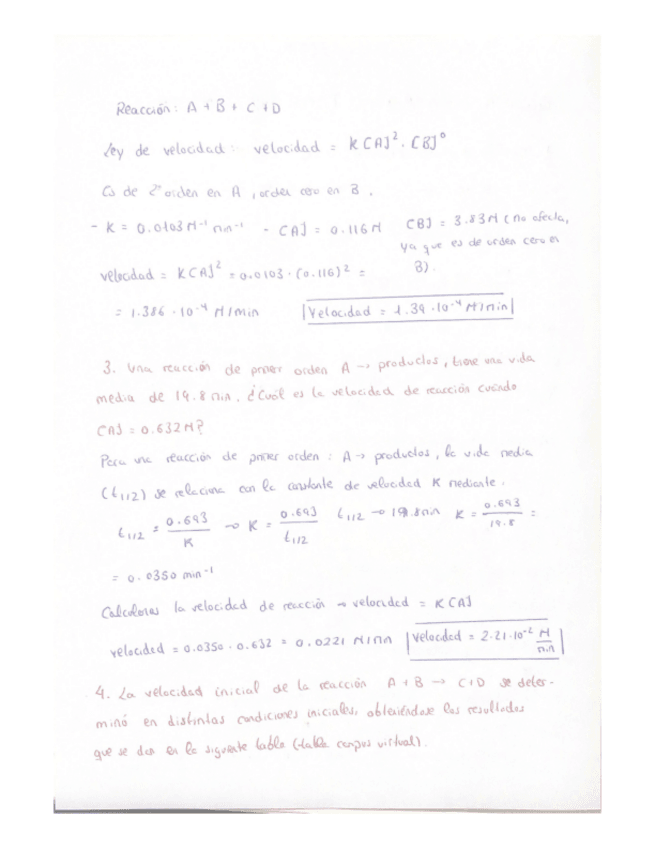 Reacción: A + B + C + D
Ley de velocidad: velocidad = K [A]² · [B]⁰
Es de 2º orden en A, orden cero en B.
- K = 0.0103 M⁻¹ min⁻¹ - [A] = 0.116 M [B] = 3.83 M (no afecta,
ya que es de orden cero en
B).
velocidad = K [A]² = 0.0103 · (0.116)² =
= 1.386 · 10⁻⁴ M/min |Velocidad = 1.39 · 10⁻⁴ M/min|
3. Una reacción de primer orden A → productos, tiene una vida
media de 19.8 min. ¿Cuál es la velocidad de reacción cuando
[A] = 0.632 M?
Para una reacción de primer orden: A → productos, la vida media
(t1/2) se relaciona con la constante de velocidad K mediante.
t1/2 = 0.693/K → K = 0.693/t1/2 t1/2 → 19.8 min K = 0.693/19.8 =
= 0.0350 min⁻¹
Calculamos la velocidad de reacción → velocidad = K [A]
velocidad = 0.0350 · 0.632 = 0.0221 M/min |Velocidad = 2.21 · 10⁻² M/min|
4. La velocidad inicial de la reacción A + B → C + D se deter-
minó en distintas condiciones iniciales, obteniéndose los resultados
que se dan en la siguiente tabla (tabla campus virtual).